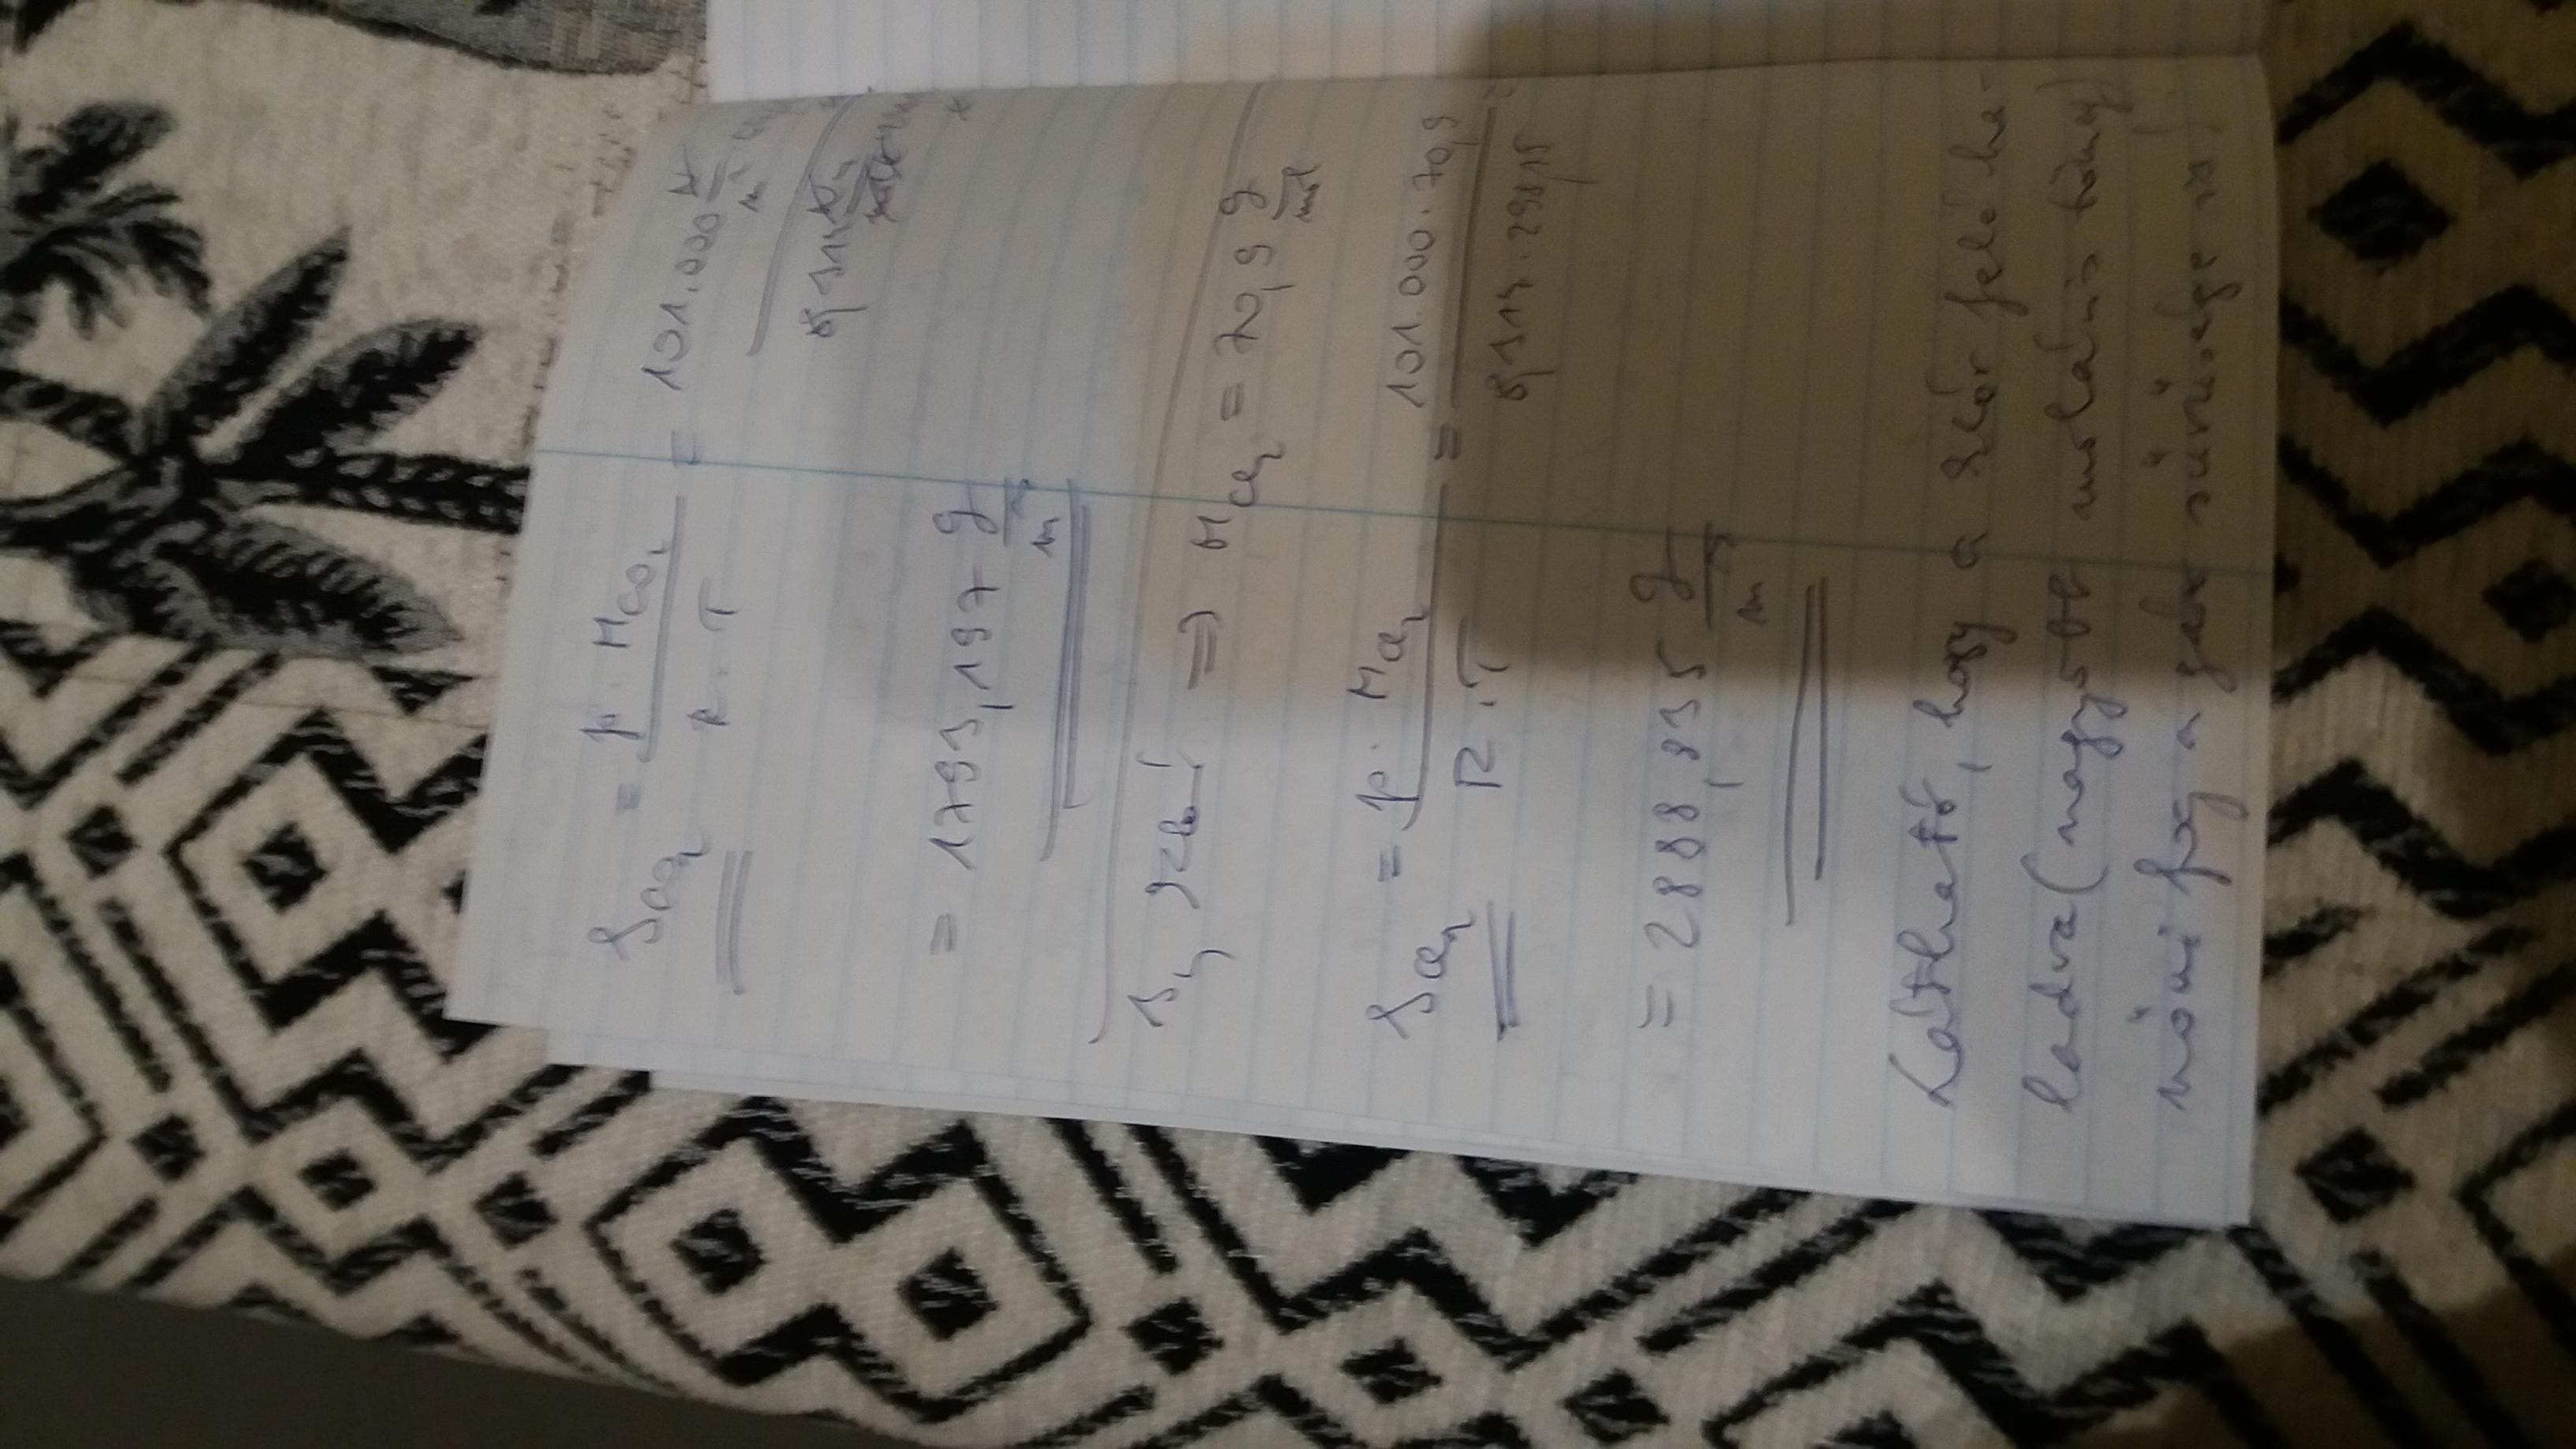 ρCO2 = p · MCO2 / R · T = 101.000 N/m²
8,314
= 1793,197 g/m³
3, => MCl2 = 70,9 g/mol
ρCl2 = p · MCl2 / R · T = 101.000 · 70,9 / 8,314 · 298,15
= 2888,835 g/m³
Látható, hogy a klór felé ha-
ladva (nagyobb moláris tömeg)
nőni fog a gáz sűrűsége is